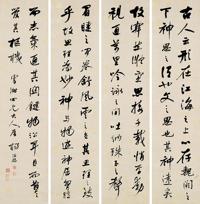 古人云形在江海之上心存魏闕之
下神思之謂也文之思也其神遠矣
故寂然凝慮思接千載悄焉動容
視通萬里吟詠之間吐納珠玉之聲
眉睫之前卷舒風雲之色其思理之致
乎故思理為妙神與物遊神居胸臆
而志氣統其關鍵物沿耳目而辭令
管其樞機 四兄大人屬